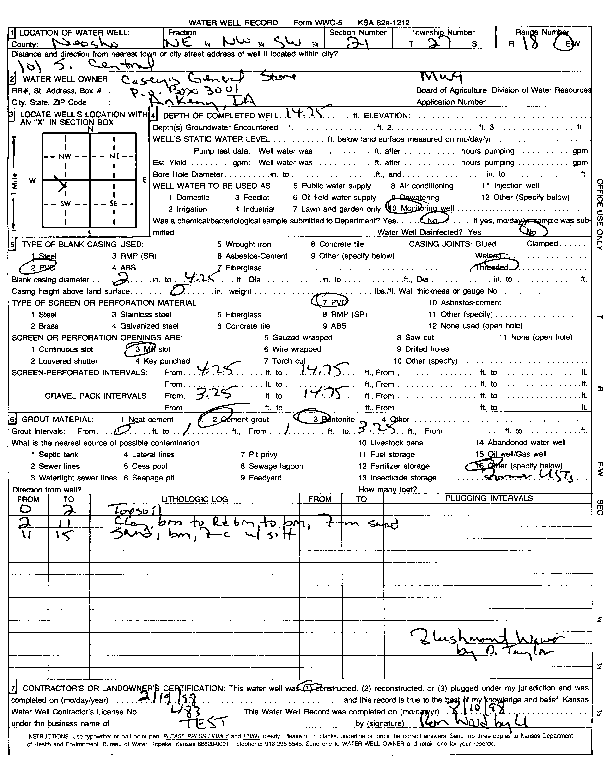 WATER WELL RECORD Form WWC-5 KSA 82a-1212
1 LOCATION OF WATER WELL: Fraction Section Number Township Number Range Number
County: Neosho NE ¼ NW ¼ SW ¼ 21 T 27 S R 18 E/W
Distance and direction from nearest town or city street address of well if located within city?
101 S. Central
2 WATER WELL OWNER Casey's General Store
RR#, St. Address, Box # : P.O. Box 3001 Board of Agriculture, Division of Water Resources
City, State, ZIP Code : Ankeny, IA Application Number:
3 LOCATE WELL'S LOCATION WITH AN "X" IN SECTION BOX:
N
NW NE
W E
SW SE
1 Mile
4 DEPTH OF COMPLETED WELL 14.75 ft. ELEVATION:
Depth(s) Groundwater Encountered 1. ft. 2. ft. 3. ft.
WELL'S STATIC WATER LEVEL ft. below land surface measured on mo/day/yr
Pump test data: Well water was ft. after hours pumping gpm
Est. Yield gpm: Well water was ft. after hours pumping gpm
Bore Hole Diameter in. to ft., and in. to ft.
WELL WATER TO BE USED AS: 5 Public water supply 8 Air conditioning 11 Injection well
1 Domestic 3 Feedlot 6 Oil field water supply 9 Dewatering 12 Other (Specify below)
2 Irrigation 4 Industrial 7 Lawn and garden only 10 Monitoring well
Was a chemical/bacteriological sample submitted to Department? Yes No If yes, mo/day/yr sample was sub
mitted Water Well Disinfected? Yes No
5 TYPE OF BLANK CASING USED: 5 Wrought iron 8 Concrete tile CASING JOINTS: Glued Clamped
1 Steel 3 RMP (SR) 6 Asbestos-Cement 9 Other (specify below) Welded
2 PVC 4 ABS 7 Fiberglass Threaded
Blank casing diameter 2 in. to 4.25 ft. Dia in. to ft., Dia in. to ft.
Casing height above land surface 0 in. weight lbs./ft. Wall thickness or gauge No.
TYPE OF SCREEN OR PERFORATION MATERIAL 7 PVC 10 Asbestos-cement
1 Steel 3 Stainless steel 5 Fiberglass 8 RMP (SR) 11 Other (specify)
2 Brass 4 Galvanized steel 6 Concrete tile 9 ABS 12 None used (open hole)
SCREEN OR PERFORATION OPENINGS ARE: 5 Gauzed wrapped 8 Saw cut 11 None (open hole)
1 Continuous slot 3 Mill slot 6 Wire wrapped 9 Drilled holes
2 Louvered shutter 4 Key punched 7 Torch cut 10 Other (specify)
SCREEN-PERFORATED INTERVALS: From 4.25 ft. to 14.75 ft., From ft. to ft.
From ft. to ft., From ft. to ft.
GRAVEL PACK INTERVALS: From 3.25 ft. to 14.75 ft., From ft. to ft.
From ft. to ft., From ft. to ft.
6 GROUT MATERIAL: 1 Neat cement 2 Cement grout 3 Bentonite 4 Other
Grout Intervals: From 0 ft. to 1 ft., From 1 ft. to 3.25 ft., From ft. to ft.
What is the nearest source of possible contamination: 10 Livestock pens 14 Abandoned water well
1 Septic tank 4 Lateral lines 7 Pit privy 11 Fuel storage 15 Oil well/Gas well
2 Sewer lines 5 Cess pool 8 Sewage lagoon 12 Fertilizer storage 16 Other (specify below)
3 Watertight sewer lines 6 Seepage pit 9 Feedyard 13 Insecticide storage USTs
Direction from well? How many feet?
FROM TO LITHOLOGIC LOG FROM TO PLUGGING INTERVALS
0 2 Topsoil
2 11 Clay, brn to Red brn to brn, f-m sand
11 15 Sand, brn, f-c w/ silt
Flushmount Waiver
by D. Taylor
7 CONTRACTOR'S OR LANDOWNER'S CERTIFICATION: This water well was (1) constructed, (2) reconstructed, or (3) plugged under my jurisdiction and was
completed on (mo/day/year) and this record is true to the best of my knowledge and belief. Kansas
Water Well Contractor's License No. 483 This Water Well Record was completed on (mo/day/yr)
under the business name of TEST by (signature)
OFFICE USE ONLY
T
R
E/W
SEC